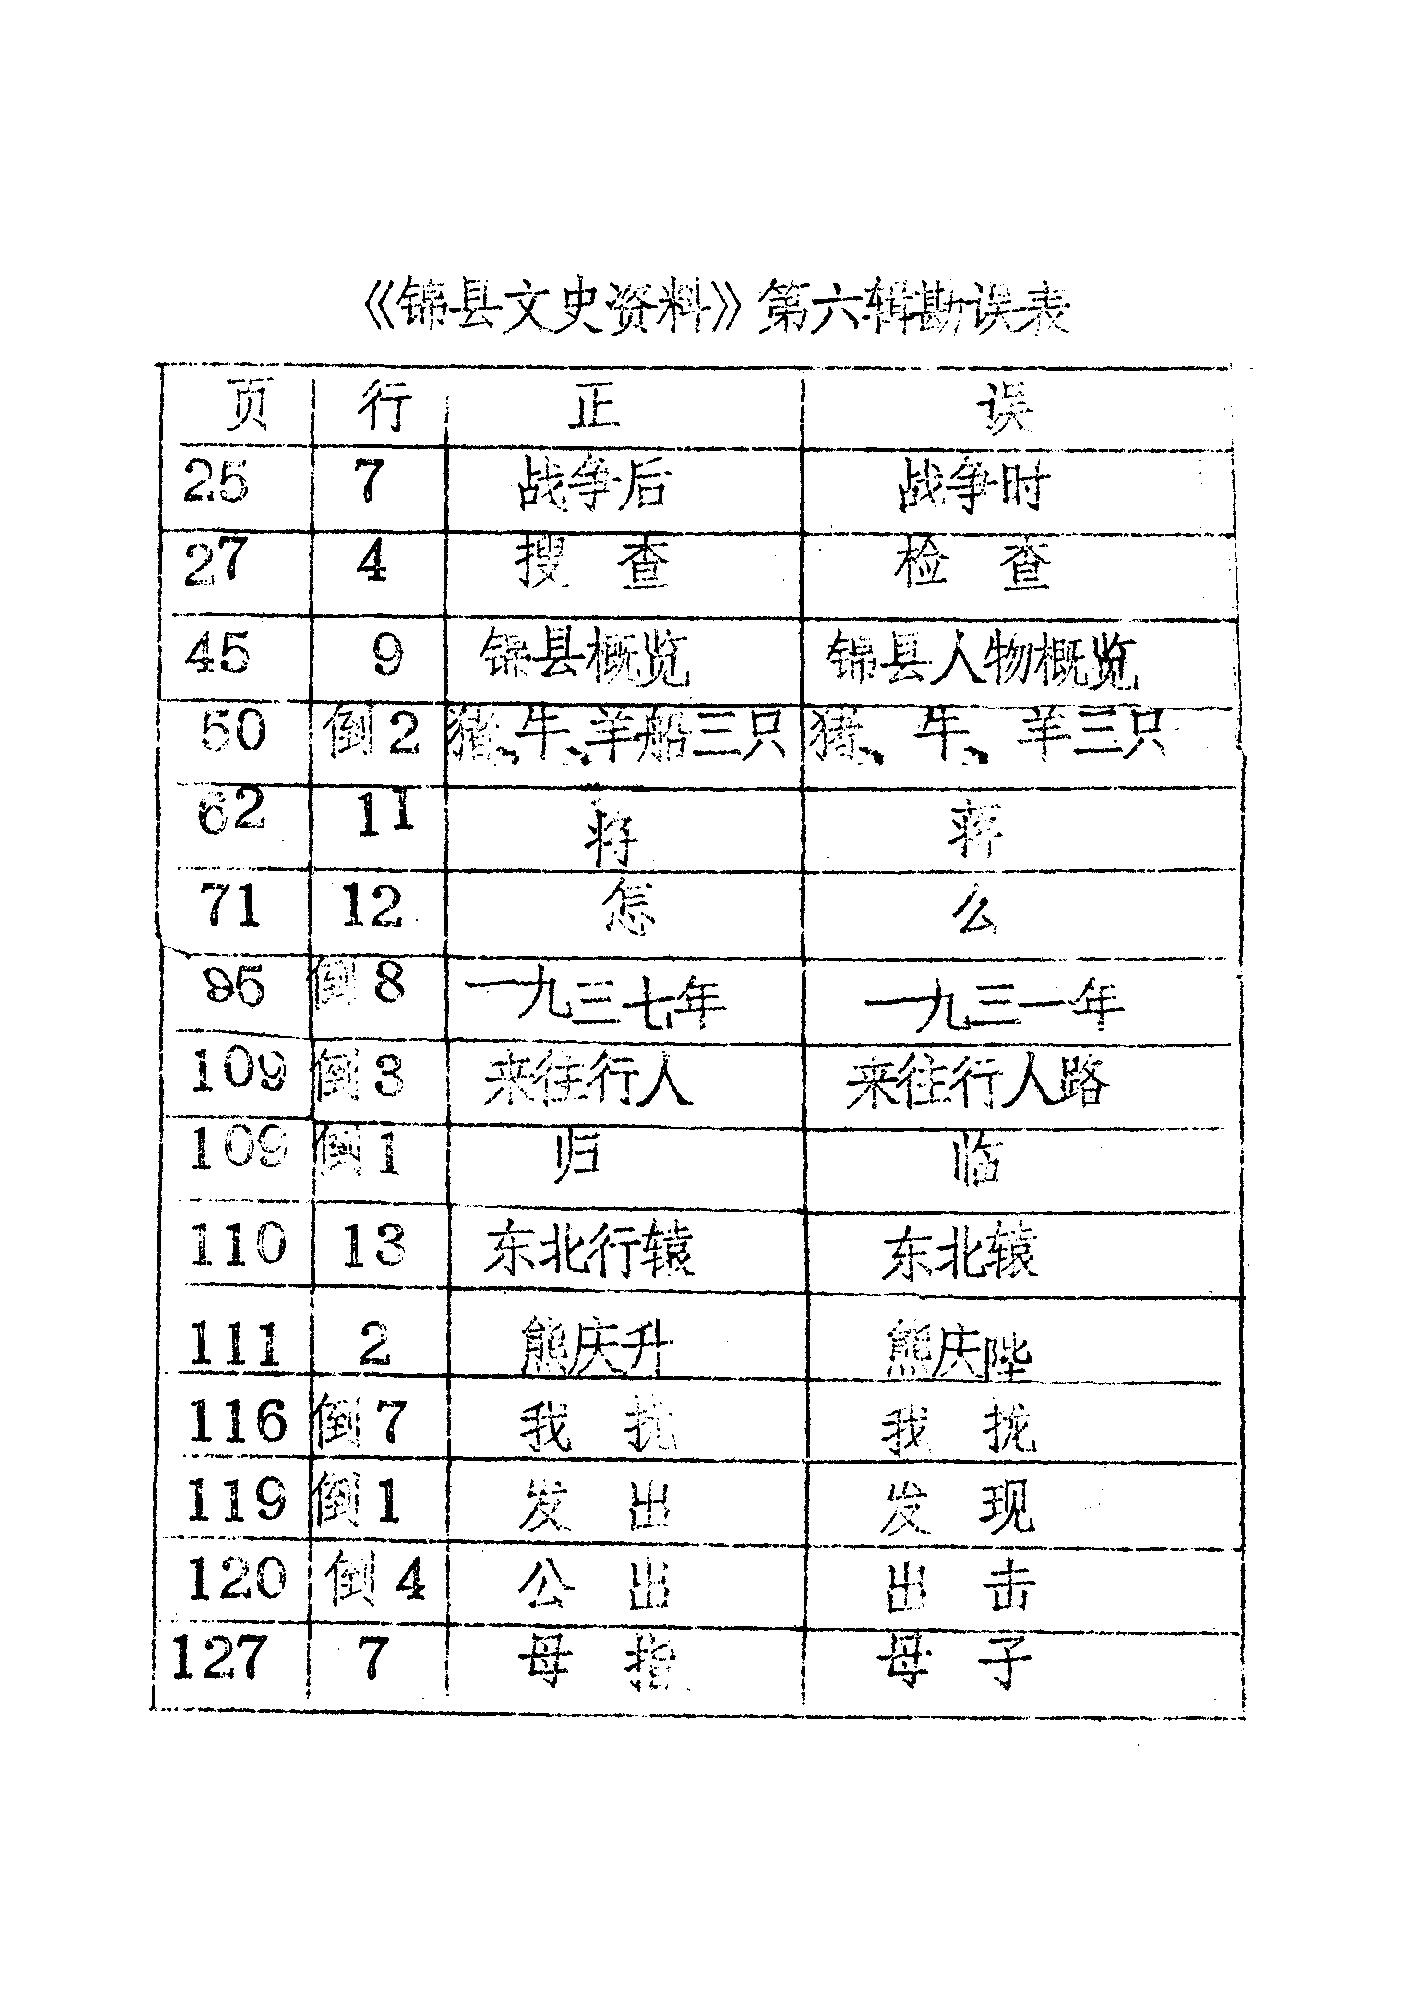 《锦县文史资料》第六辑勘误表
页 行 正 误
25 7 战争后 战争时
27 4 搜 查 检 查
45 9 锦县概览 锦县人物概览
50 倒2 猪、牛、羊船三只 猪、牛、羊三只
62 11 将 蒋
71 12 怎 么
95 倒8 一九三七年 一九三一年
109 倒3 来往行人 来往行人路
109 倒1 归 临
110 13 东北行辕 东北辕
111 2 熊庆升 熊庆陞
116 倒7 我 我 拢
119 倒1 发 出 发 现
120 倒4 公 出 出 击
127 7 母 指 母 子